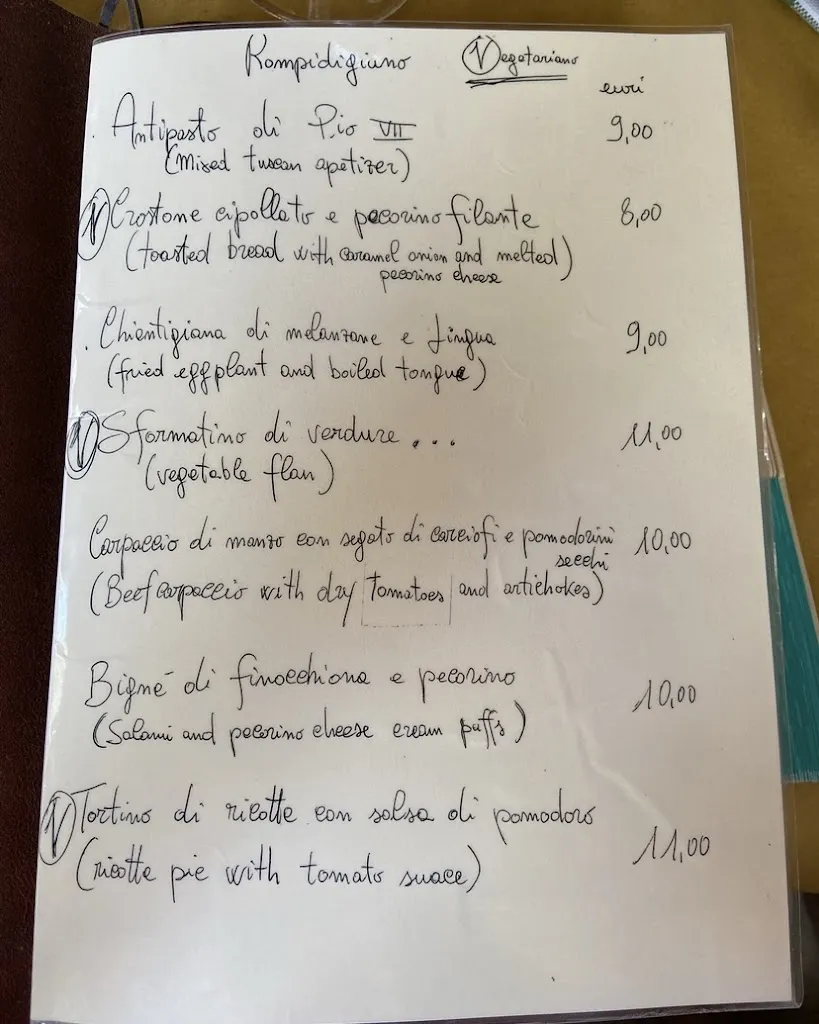 Rompidigiuno Vegetariano
euri
Antipasto di Pio VII 9,00
(Mixed tuscan apetizer)
V Crostone cipollato e pecorino filante 8,00
(toasted bread with caramel onion and melted)
pecorino cheese
Chientigiana di melanzane e lingua 9,00
(fried eggplant and boiled tongue)
V Sformatino di verdure... 11,00
(vegetable flan)
Carpaccio di manzo con segato di carciofi e pomodorini 10,00
secchi
(Beef carpaccio with dry tomatoes and artichokes)
Bigné di finocchiona e pecorino 10,00
(Salami and pecorino cheese cream puffs)
V Tortino di ricotta con salsa di pomodoro 11,00
(ricotta pie with tomato suace)